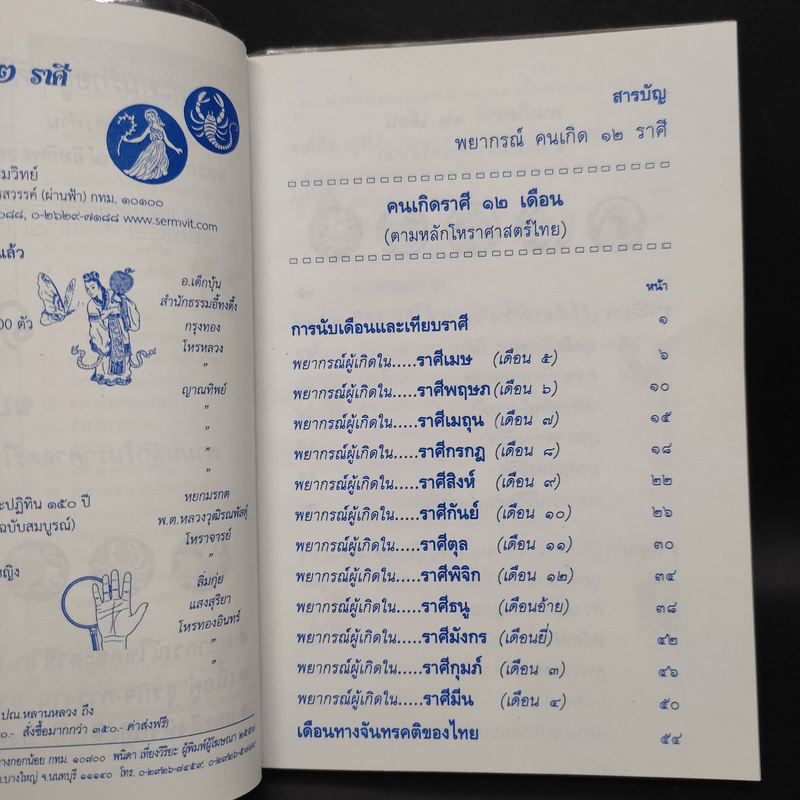 ๒ ราศี
มวิทย์
รสวรรค์ (ผ่านฟ้า) กทม. ๑๐๑๐๐
๐๘๘, ๐-๒๖๒๙-๗๑๘๘ www.sermvit.com
แล้ว
อ.เต็กบุ้น
สำนักธรรมอี้ทงตึ้ง
00 ตัว
กรุงทอง
โหรหลวง
"
ญาณทิพย์
"
"
"
"
หยกมรกต
ะปฏิทิน ๑๕๐ ปี
พ.ต.หลวงวุฒิรณพัสดุ์
ฉบับสมบูรณ์)
โหราจารย์
"
ญิง
ลิ่มกุ่ย
แสงสุริยา
โหรทองอินทร์
"
"
ปณ.หลานหลวง ถึง
๐.- สั่งซื้อมากกว่า ๓๕๐.- ค่าส่งฟรี)
างกอกน้อย กทม. ๑๐๗๐๐ พนิดา เที่ยงวิริยะ ผู้พิมพ์ผู้โฆษณา ๒๕๕๗
อ.บางใหญ่ จ.นนทบุรี ๑๑๑๔๐
สารบัญ
พยากรณ์ คนเกิด ๑๒ ราศี
คนเกิดราศี ๑๒ เดือน
(ตามหลักโหราศาสตร์ไทย)
หน้า
การนับเดือนและเทียบราศี ๑
พยากรณ์ผู้เกิดใน.....ราศีเมษ (เดือน ๕) ๖
พยากรณ์ผู้เกิดใน.....ราศีพฤษภ (เดือน ๖) ๑๐
พยากรณ์ผู้เกิดใน.....ราศีเมถุน (เดือน ๗) ๑๕
พยากรณ์ผู้เกิดใน.....ราศีกรกฎ (เดือน ๘) ๑๘
พยากรณ์ผู้เกิดใน.....ราศีสิงห์ (เดือน ๙) ๒๒
พยากรณ์ผู้เกิดใน.....ราศีกันย์ (เดือน ๑๐) ๒๖
พยากรณ์ผู้เกิดใน.....ราศีตุล (เดือน ๑๑) ๓๐
พยากรณ์ผู้เกิดใน.....ราศีพิจิก (เดือน ๑๒) ๓๔
พยากรณ์ผู้เกิดใน.....ราศีธนู (เดือนอ้าย) ๓๘
พยากรณ์ผู้เกิดใน.....ราศีมังกร (เดือนยี่) ๔๒
พยากรณ์ผู้เกิดใน.....ราศีกุมภ์ (เดือน ๓) ๔๖
พยากรณ์ผู้เกิดใน.....ราศีมีน (เดือน ๔) ๕๐
เดือนทางจันทรคติของไทย ๕๔